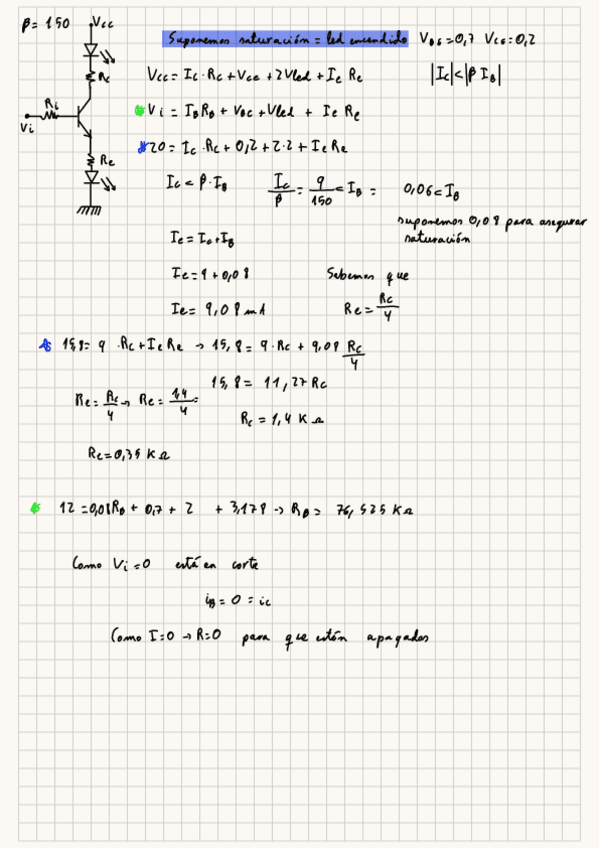 β = 150
Vcc
Suponemos saturación = led encendido VBE = 0,7 VCE = 0,2
Rc
Vcc = Ic · Rc + Vce + 2Vled + Ie Re |Ic| < |β IB|
Ri
Vi
Vi = IB RB + VBC + Vled + Ie Re
Re
20 = Ic · Rc + 0,2 + 2·2 + Ie Re
Ic < β · IB Ic/β = 9/150 < IB = 0,06 < IB
suponemos 0,08 para asegurar
saturación
Ie = Ic + IB
Ie = 9 + 0,08 Sabemos que
Ie = 9,08 mA Re = Rc/4
15,8 = 9 · Rc + Ie Re → 15,8 = 9 · Rc + 9,08 Rc/4
15,8 = 11,27 Rc
Re = Rc/4 → Re = 1,4/4 =
Rc = 1,4 KΩ
Re = 0,35 KΩ
12 = 0,08 RB + 0,7 + 2 + 3,178 → RB = 76,525 KΩ
Como Vi = 0 está en corte
iB = 0 = ic
Como I = 0 → R = 0 para que estén apagados